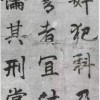 奸犯科及
善者宜付
論其刑賞